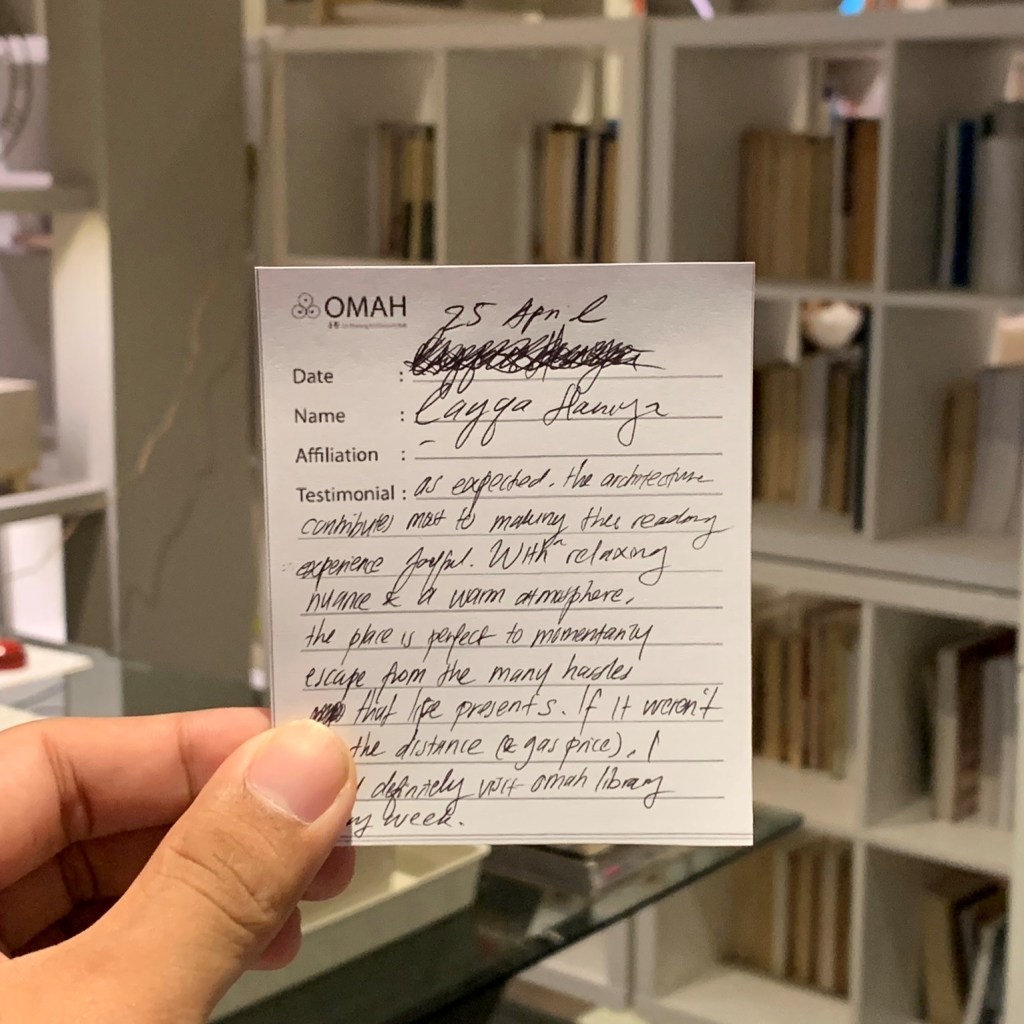 OMAH
25 April
Date :
Name :
Affiliation : -
Testimonial : as expected, the architecture
contributes most to making the reading
experience joyful. With relaxing
nuance & a warm atmosphere,
the place is perfect to momentarily
escape from the many hassles
that life presents. If it weren't
the distance (& gas price), I
definitely visit omah library
week.